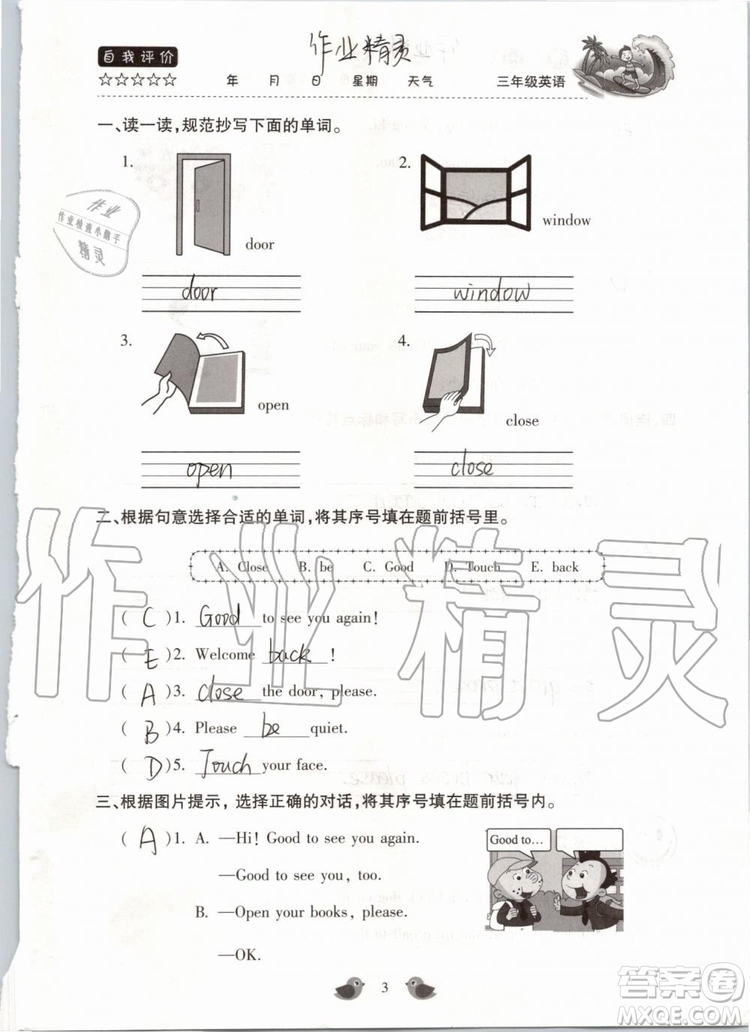 自我评价 作业精灵
☆☆☆☆☆ 年 月 日 星期 天气 三年级英语
一、读一读,规范抄写下面的单词。
1. door
2. window
door
window
3. open
4. close
open
close
二、根据句意选择合适的单词,将其序号填在题前括号里。
A. Close B. be C. Good D. Touch E. back
( C )1. Good to see you again!
( E )2. Welcome back !
( A )3. close the door, please.
( B )4. Please be quiet.
( D )5. Touch your face.
三、根据图片提示，选择正确的对话,将其序号填在题前括号内。
( A )1. A. —Hi! Good to see you again.
—Good to see you, too.
B. —Open your books, please.
—OK.
Good to…
Good to…
3
作业
作业检查小助手
精灵
作业精灵
答案圈
MXQE.COM